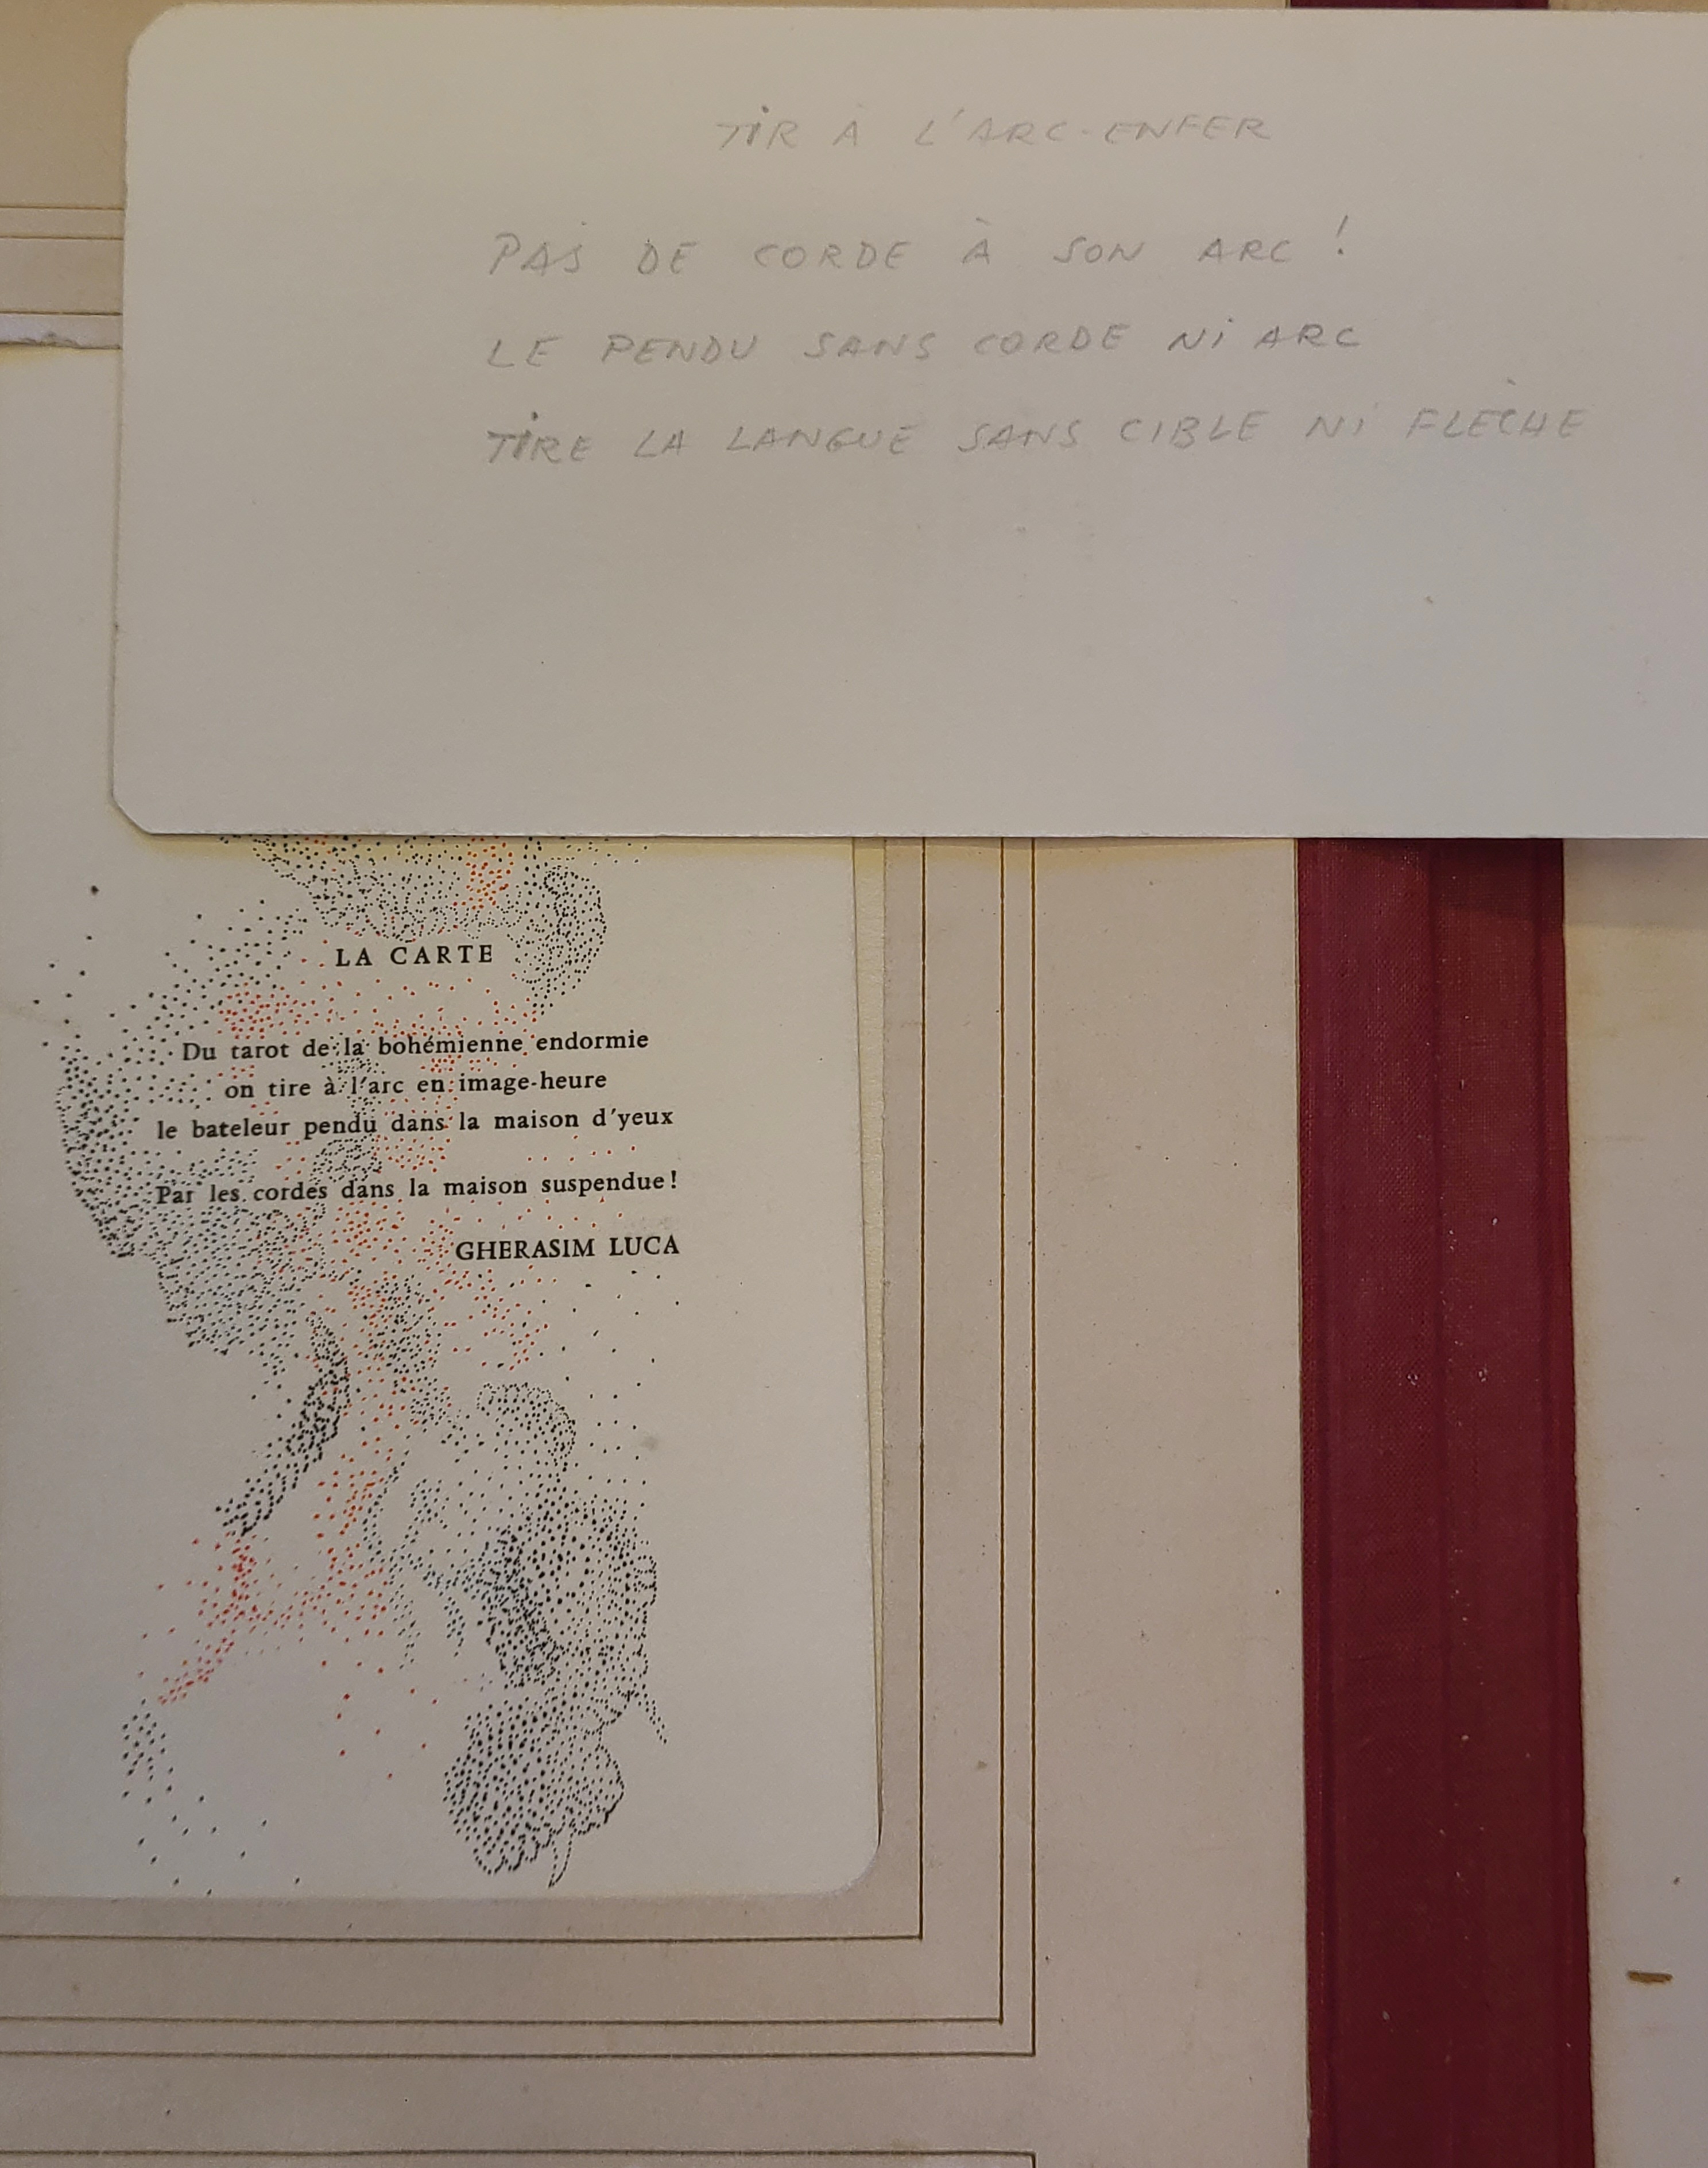 TIR À L'ARC-ENFER
PAS DE CORDE À SON ARC !
LE PENDU SANS CORDE Ni ARC
TIRE LA LANGUE SANS CIBLE Ni FLÈCHE
LA CARTE
Du tarot de la bohémienne endormie
on tire à l'arc en image-heure
le bateleur pendu dans la maison d'yeux
Par les cordes dans la maison suspendue !
GHERASIM LUCA